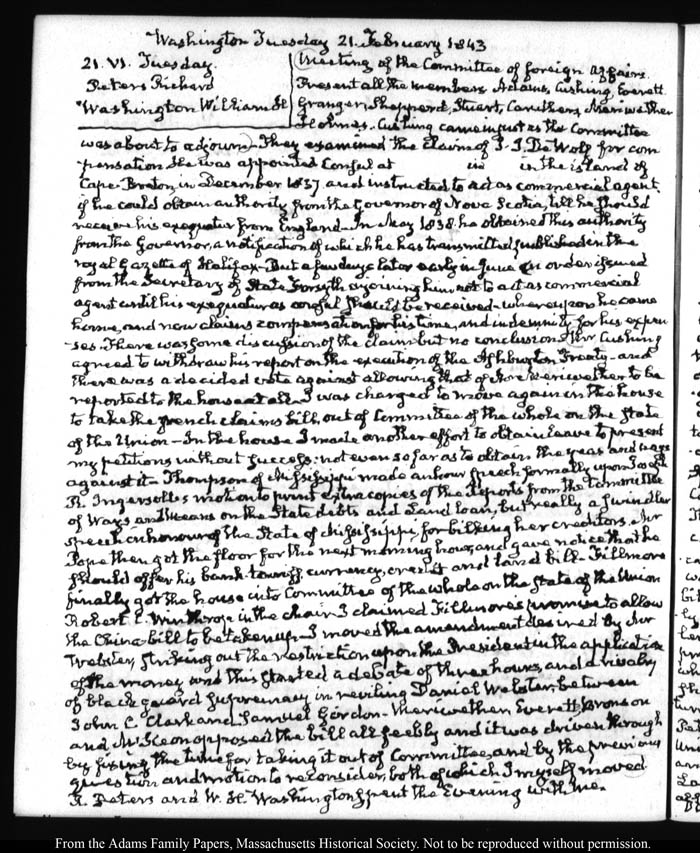 Washington Tuesday 21. February 1843
21. VI. Tuesday.
Peters Richard
Washington William H
Meeting of the Committee of foreign affairs.
Present all the members, Adams, Cushing, Everett
Granger, Shepperd, Stuart, Caruthers, Meriwether
Holmes. Cushing came in just as the Committee
was about to adjourn. They examined the claim of J. J. De Wolf for com
pensation. He was appointed Consul at in in the island of
Cape-Breton, in December 1837 and instructed to act as commercial agent,
if he could obtain authority from the Governor of Nova Scotia, till he should
receive his exequatur from England. In May 1838 he obtained this authority
from the Governor, a notification of which he has transmitted published in the
royal Gazette of Halifax. But a few days later early in June an order issued
from the Secretary of State Forsyth enjoining him not to act as commercial
agent until his exequatur as consul should be received—whereupon he came
home, and now claims compensation for his time, and indemnity for his expen
-ses. There was some discussion of the claim but no conclusion. Mr Cushing
agreed to withdraw his report on the execution of the Ashburton Treaty—and
there was a decided vote against allowing that of Mr Meriwether to be
reported to the house at all. I was charged to move again in the house
to take the french claims bill, out of Committee of the whole on the State
of the Union—In the house I made another effort to obtain leave to present
my petitions without success: not even so far as to obtain the yeas and nays
against it. Thompson of Mississippi made an hour speech formally upon Joseph
R. Ingersoll's motion to print extra copies of the reports from the Committee
of Ways and Means on the State debts and Land loan, but really a swindler
speech in honour of the State of Mississippi for bilking her creditors. Mr
Pope then got the floor for the next morning hour, and gave notice that he
should offer his bank, tariff, currency, credit and land bill—Fillmore
finally got the house into Committee of the whole on the State of the Union
Robert C. Winthrop in the chair. I claimed Fillmore's promise to allow
the China bill to be taken up. I moved the amendment desired by Mr
Webster, striking out the restriction upon the President in the application
of the money and this started a debate of three hours, and a rivalry
of black guard supremacy in reviling Daniel Webster, between
John C. Clark and Samuel Gordon—Meriwether, Everett, Bronson
and McKeon opposed the bill all feebly and it was driven through
by fixing the time for taking it out of Committee, and by the previous
question and motion to reconsider, both of which I myself moved
R. Peters and W. H. Washington spent the Evening with me.
From the Adams Family Papers, Massachusetts Historical Society. Not to be reproduced without permission.